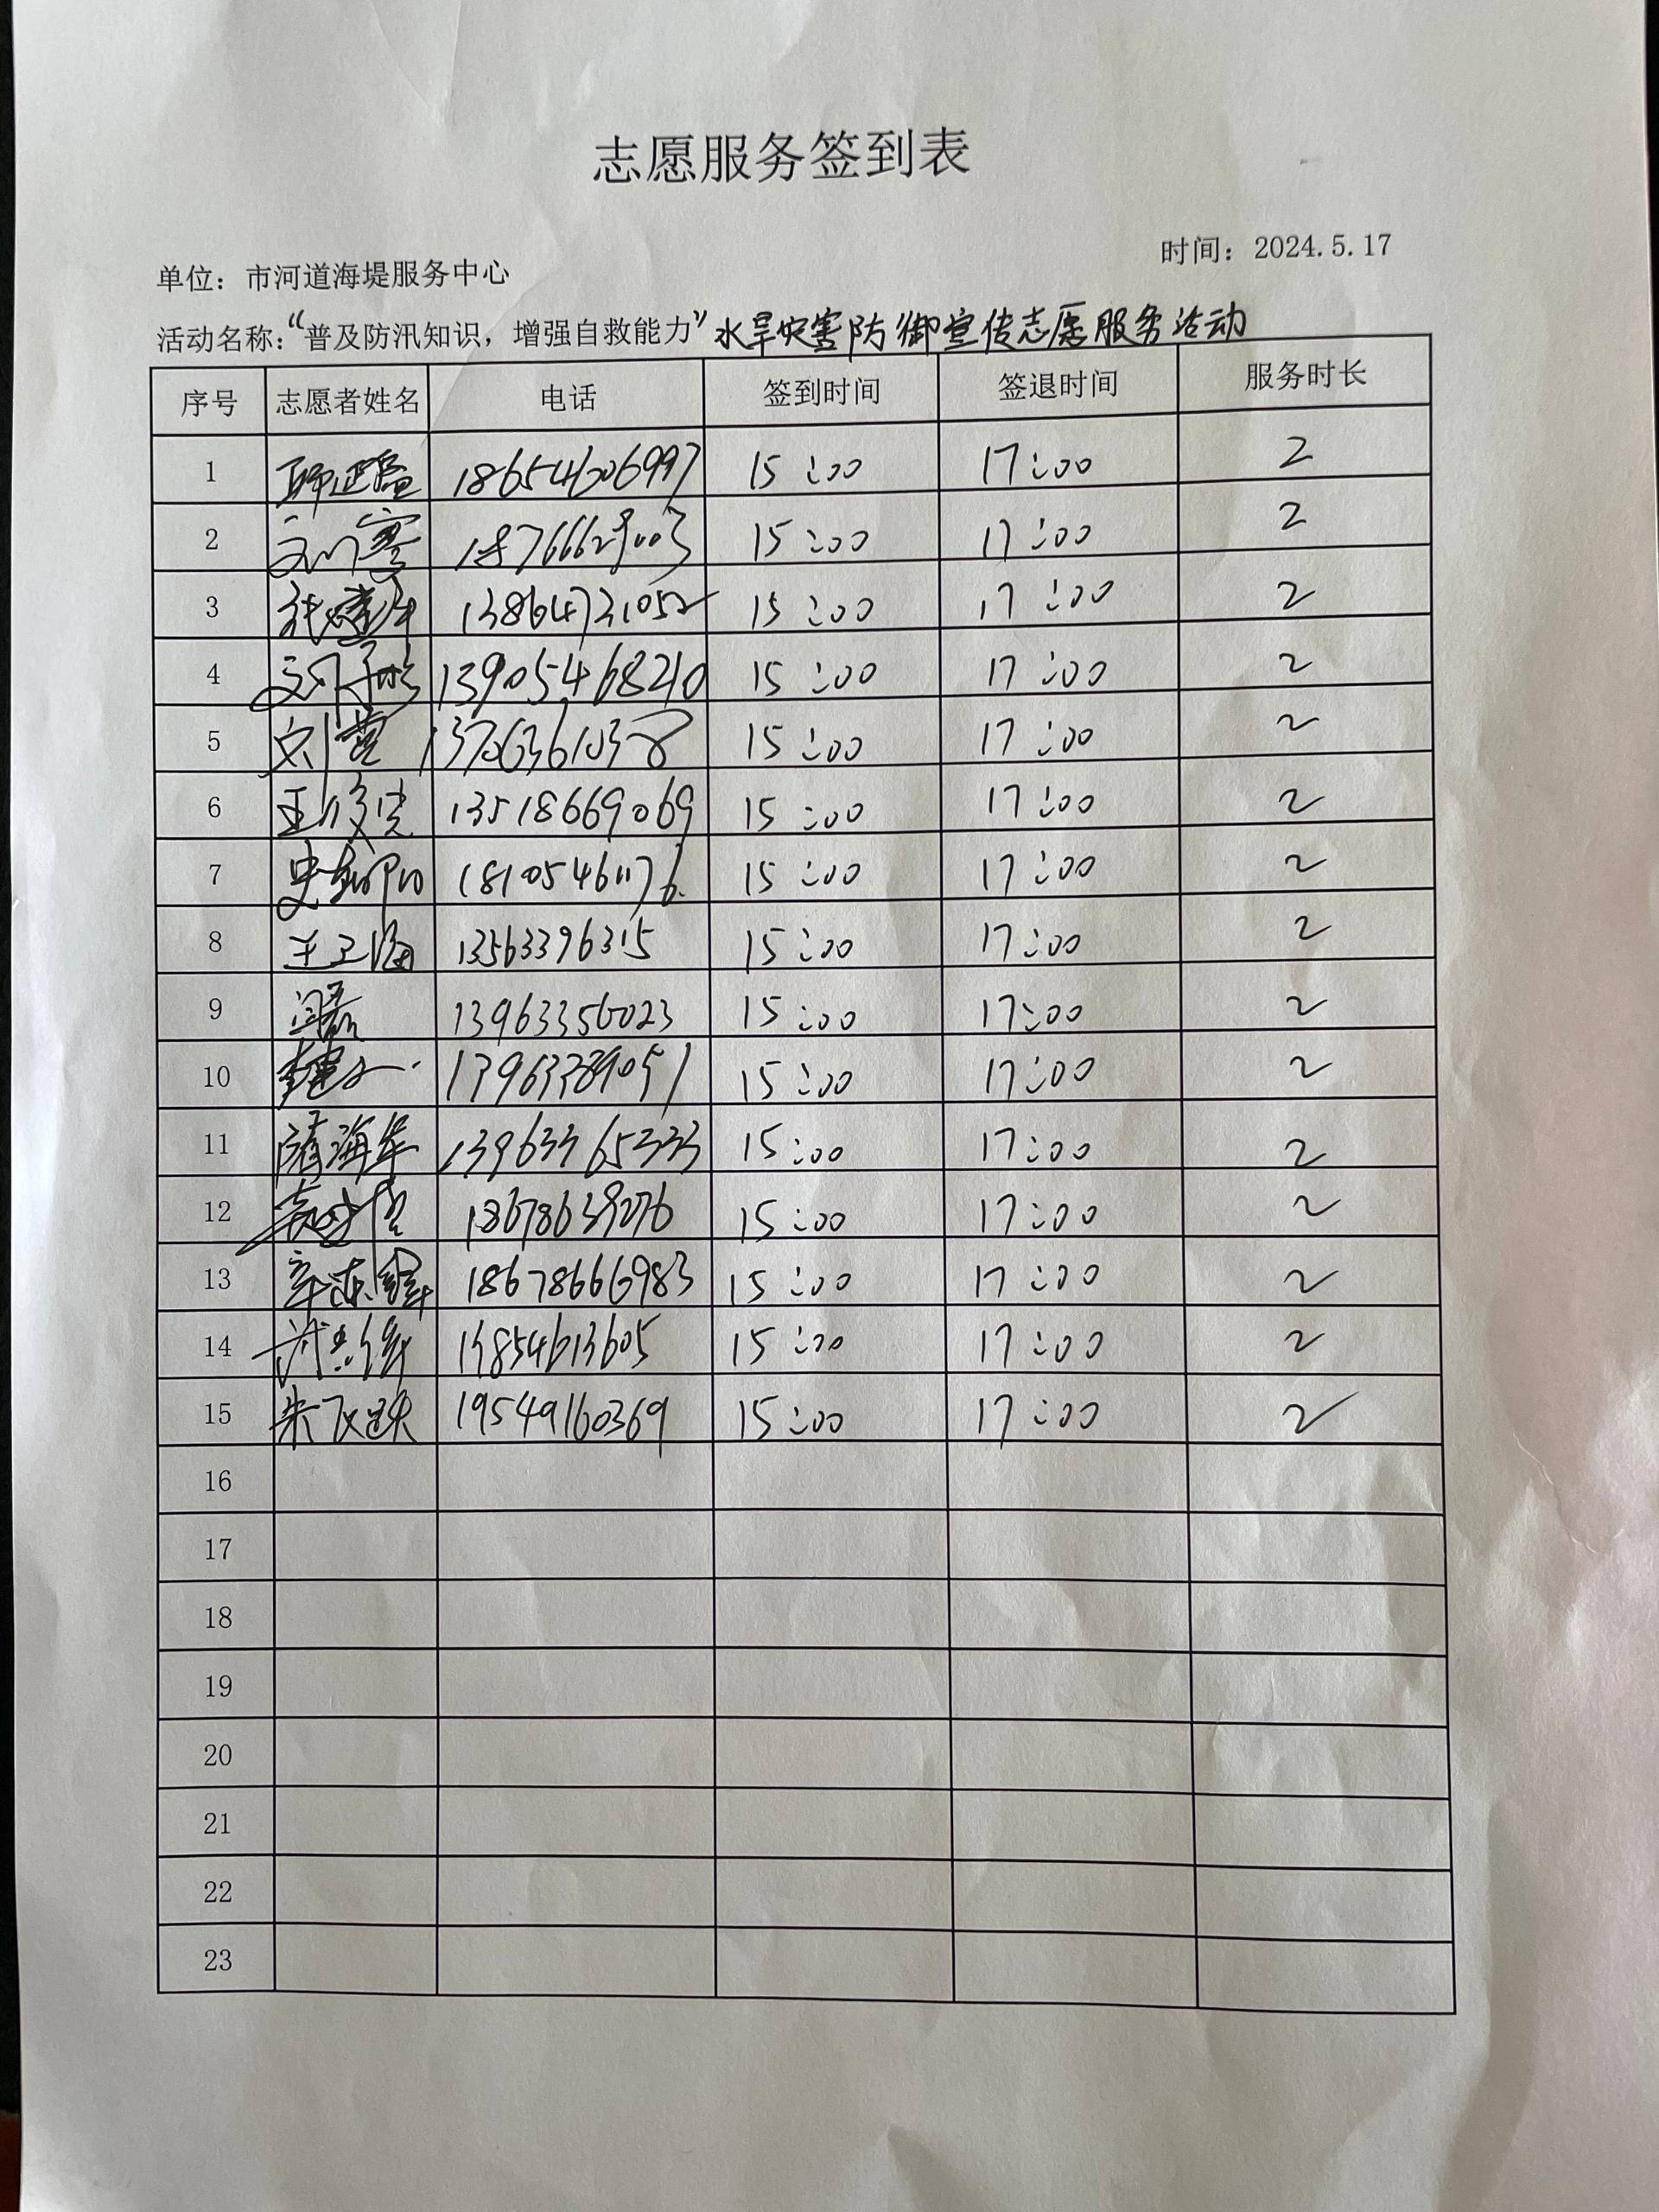 志愿服务签到表
时间：2024.5.17
单位：市河道海堤服务中心
活动名称：“普及防汛知识，增强自救能力”水旱灾害防御宣传志愿服务活动
序号 志愿者姓名 电话 签到时间 签退时间 服务时长
1 18654606997 15:00 17:00 2
2 15:00 17:00 2
3 13864731052 15:00 17:00 2
4 13905468210 15:00 17:00 2
5 刘营 13706361038 15:00 17:00 2
6 13518669069 15:00 17:00 2
7 18105461176 15:00 17:00 2
8 王卫海 13563396315 15:00 17:00 2
9 13963356023 15:00 17:00 2
10 13963389051 15:00 17:00 2
11 隋海华 13963365333 15:00 17:00 2
12 18678639076 15:00 17:00 2
13 18678666983 15:00 17:00 2
14 15:00 17:00 2
15 朱飞跃 19549160369 15:00 17:00 2
16
17
18
19
20
21
22
23